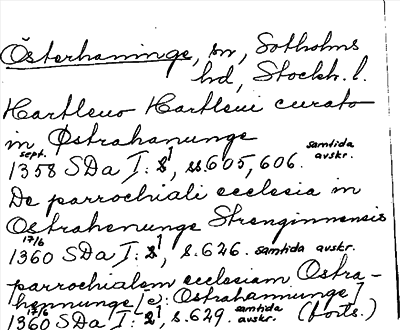 Österhaninge, sn, Sotholms
hd, Stockh. l.
Hartlevo Hartlevi curato
in Østrahanunge
sept. samtida
1358 SDa I: 1, ss. 605, 606. avskr.
De parrochiali ecclesia in
Ostrahenunge Strenginnensis
17/6
1360 SDa I: 1, s. 626. samtida avskr.
parrochialem ecclesiam Ostra-
hennunge [c): Ostrahannunge]
17/6 samtida
1360 SDa I: 1, s. 629. avskr. (forts.)